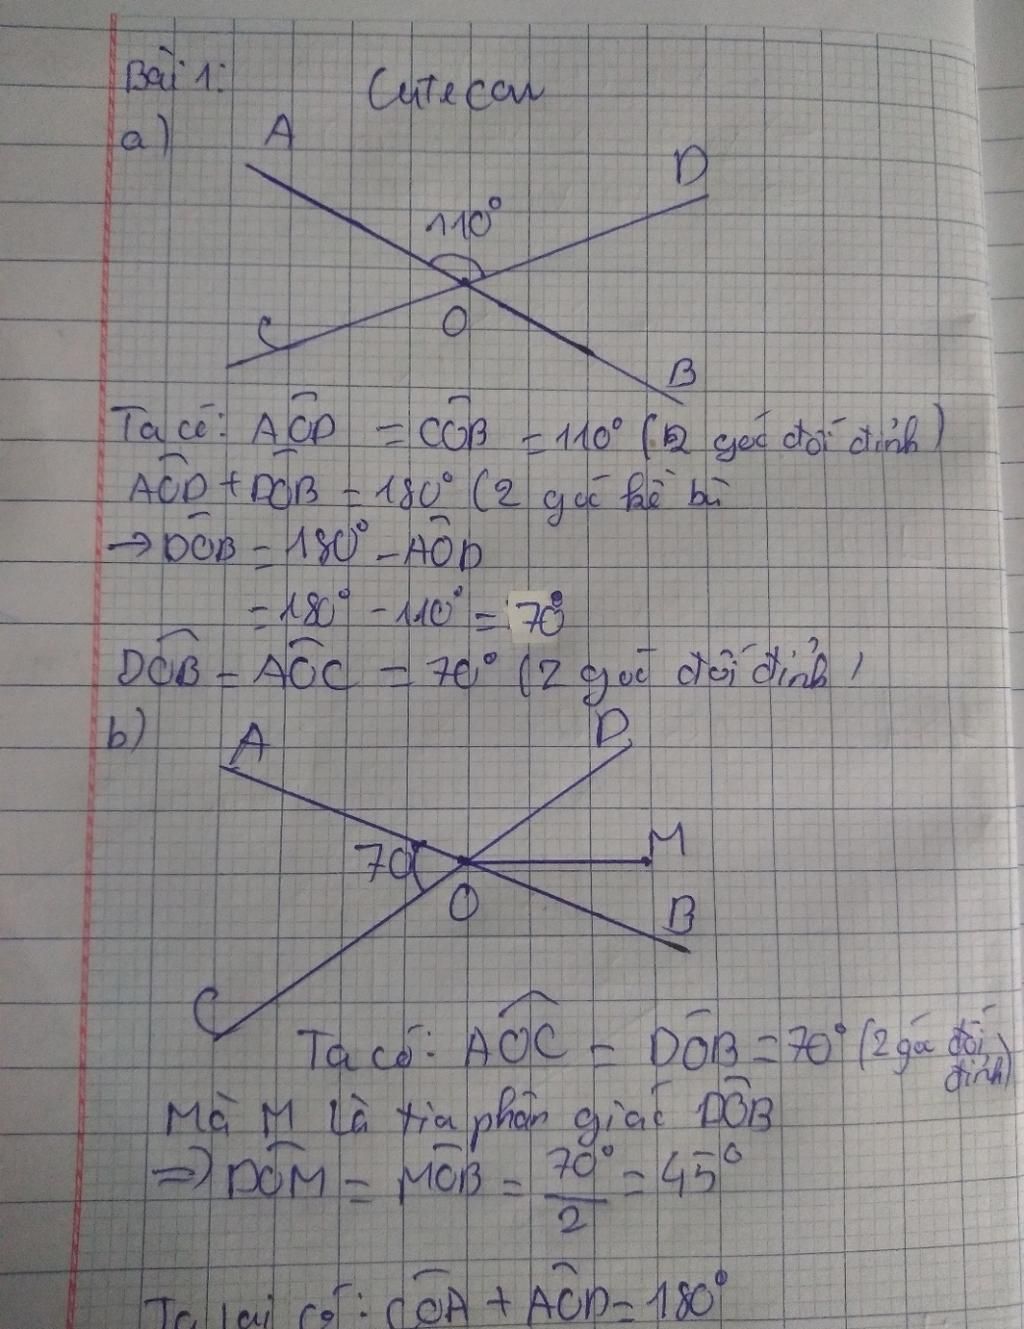 Bài 1:
Cutecau
a)
A
D
110°
C
O
B
Ta có: AÔD = CÔB = 110° (2 góc đối đỉnh)
AÔD + DÔB = 180° (2 góc kề bù
→ DÔB = 180° - AÔD
= 180° - 110° = 70°
DÔB = AÔC = 70° (2 góc đối đỉnh)
b)
A
D
70
M
O
B
C
Ta có: AÔC = DÔB = 70° (2 góc đối đỉnh)
Mà M là tia phân giác DÔB
=> DÔM = MÔB = 70°/2 = 45°
Ta lại có: CÔA + AÔD = 180°